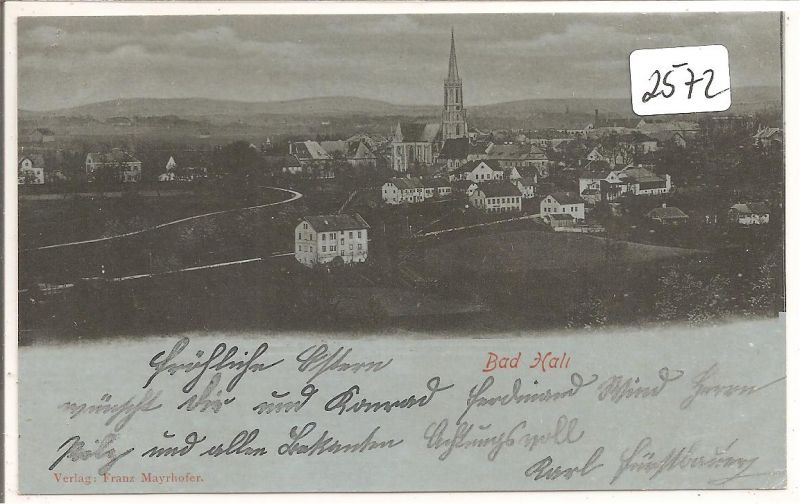 2572
Bad Hall
Fröhliche Ostern
wünscht Dir und Konrad Ferdinand Wind Herrn
und allen Bekannten Achtungsvoll
Karl Fürstbauer
Verlag: Franz Mayrhofer.